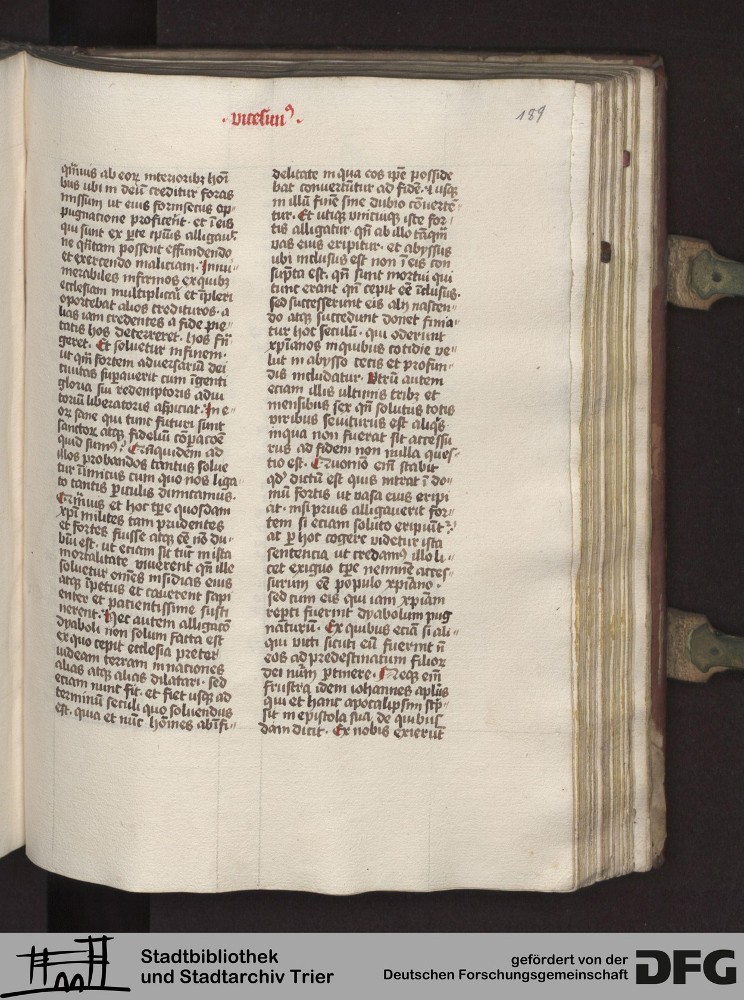 · vicesimꝰ ·
189
qͣmuis ab eoꝝ interiorib; homͥ
bus ubi in deū creditur foras
missum ut eius forinsecus op⸗
pugnatione proficerēt · et ī eis
qui sunt ex ꝑte ipsius alligauͥ
ne qͣntam possent effundendo
et exercendo maliciam · Innu⸗
merabiles infirmos ex quib;
ecclesiam multiplicari et īpleri
oportebat alios credituros · a
lias iam credentes a fide pie⸗
tatis hos deterreret · hos frā
geret · Et soluetur in finem ·
ut qͣm fortem aduersariū dei
ciuitas suꝑauerit cum īgenti
gloria sui redemptoris adiu
toris liberatoris aspiciat · In e⸗
oꝝ sane qui tunc futuri sunt
sanctoꝝ atqꝫ fidelium cōꝑacōe
quid sumꝰ? Cn̄quidem ad
illos probandos tantus solue
tur īimicus cum quo nos liga⸗
to tantis ꝑiculis dimicamus ·
Qͣmuis et hoc tꝑe quosdam
xp̄i milites tam prudentes
et fortes fuisse atqꝫ eē nō du⸗
biū est · ut etiam si tūc in ista
mortalitate viuerent qn̄ ille
soluetur omēs insidias eius
atqꝫ īpetus et cauerent sapi
enter et patientissime susti
nerent · Hec autem alligatō
dyaboli non solum facta est
ex quo cepit ecclesia preter
iudeam terram in nationes
alias atqꝫ alias dilatari · sed
etiam nunc fit · et fiet usqꝫ ad
terminū seculi quo soluendus
est · quia et nūc homīes ab īfi⸗
delitate in qua eos ipse posside
bat conuertūtur ad fidē · ⁊ usqꝫ
in illū finē sine dubio cōuertē⸗
tur · Et utiqꝫ unicuiqꝫ iste for⸗
tis alligatur qn̄ ab illo tāqͣm
vas eius eripitur · et abyssus
ubi inclusus est non ī eis con
sūpta est · qn̄ sunt mortui qui
tunc erant qn̄ cepit eē īclusus ·
sed successerunt eis alij nascen⸗
do atqꝫ succedunt donec finia⸗
tur hoc seculū · qui oderunt
xp̄ianos in quibus cotidie ve⸗
lut in abysso cecis et profun⸗
dis includatur · Utrū autem
etiam illis ultimis trib; et
mensibus sex qn̄ solutus totis
viribus seuiturus est aliqͥs
in qua non fuerat sit accessu
rus ad fidem non nulla ques⸗
tio est · Quomō em̄ stabit
qd̓ dictū est quis intrat ī do⸗
mū fortis ut vasa eius eripi
at · nisi prius alligauerit for⸗
tem si etiam soluto eripiūt?
at ꝑ hoc cogere videtur ista
sentencia ut credamꝰ illo li⸗
cet exiguo tꝑe neminē acces⸗
surum eē populo xp̄iano ·
sed cum eis qui iam xp̄iani
reperti fuerint dyabolum pug
naturū · Ex quibus eciā si ali⸗
qui victi secuti eū fuerint n̄
eos ad predestinatum filioꝝ
dei nūm ꝑtinere · Neqꝫ em̄
frustra idem iohannes aplūs
qui et hanc apocalipsim scrͥp⸗
sit in epistola sua de quibus
dam dicit · Ex nobis exierūt
Stadtbibliothek
und Stadtarchiv Trier
gefördert von der
Deutschen Forschungsgemeinschaft
DFG